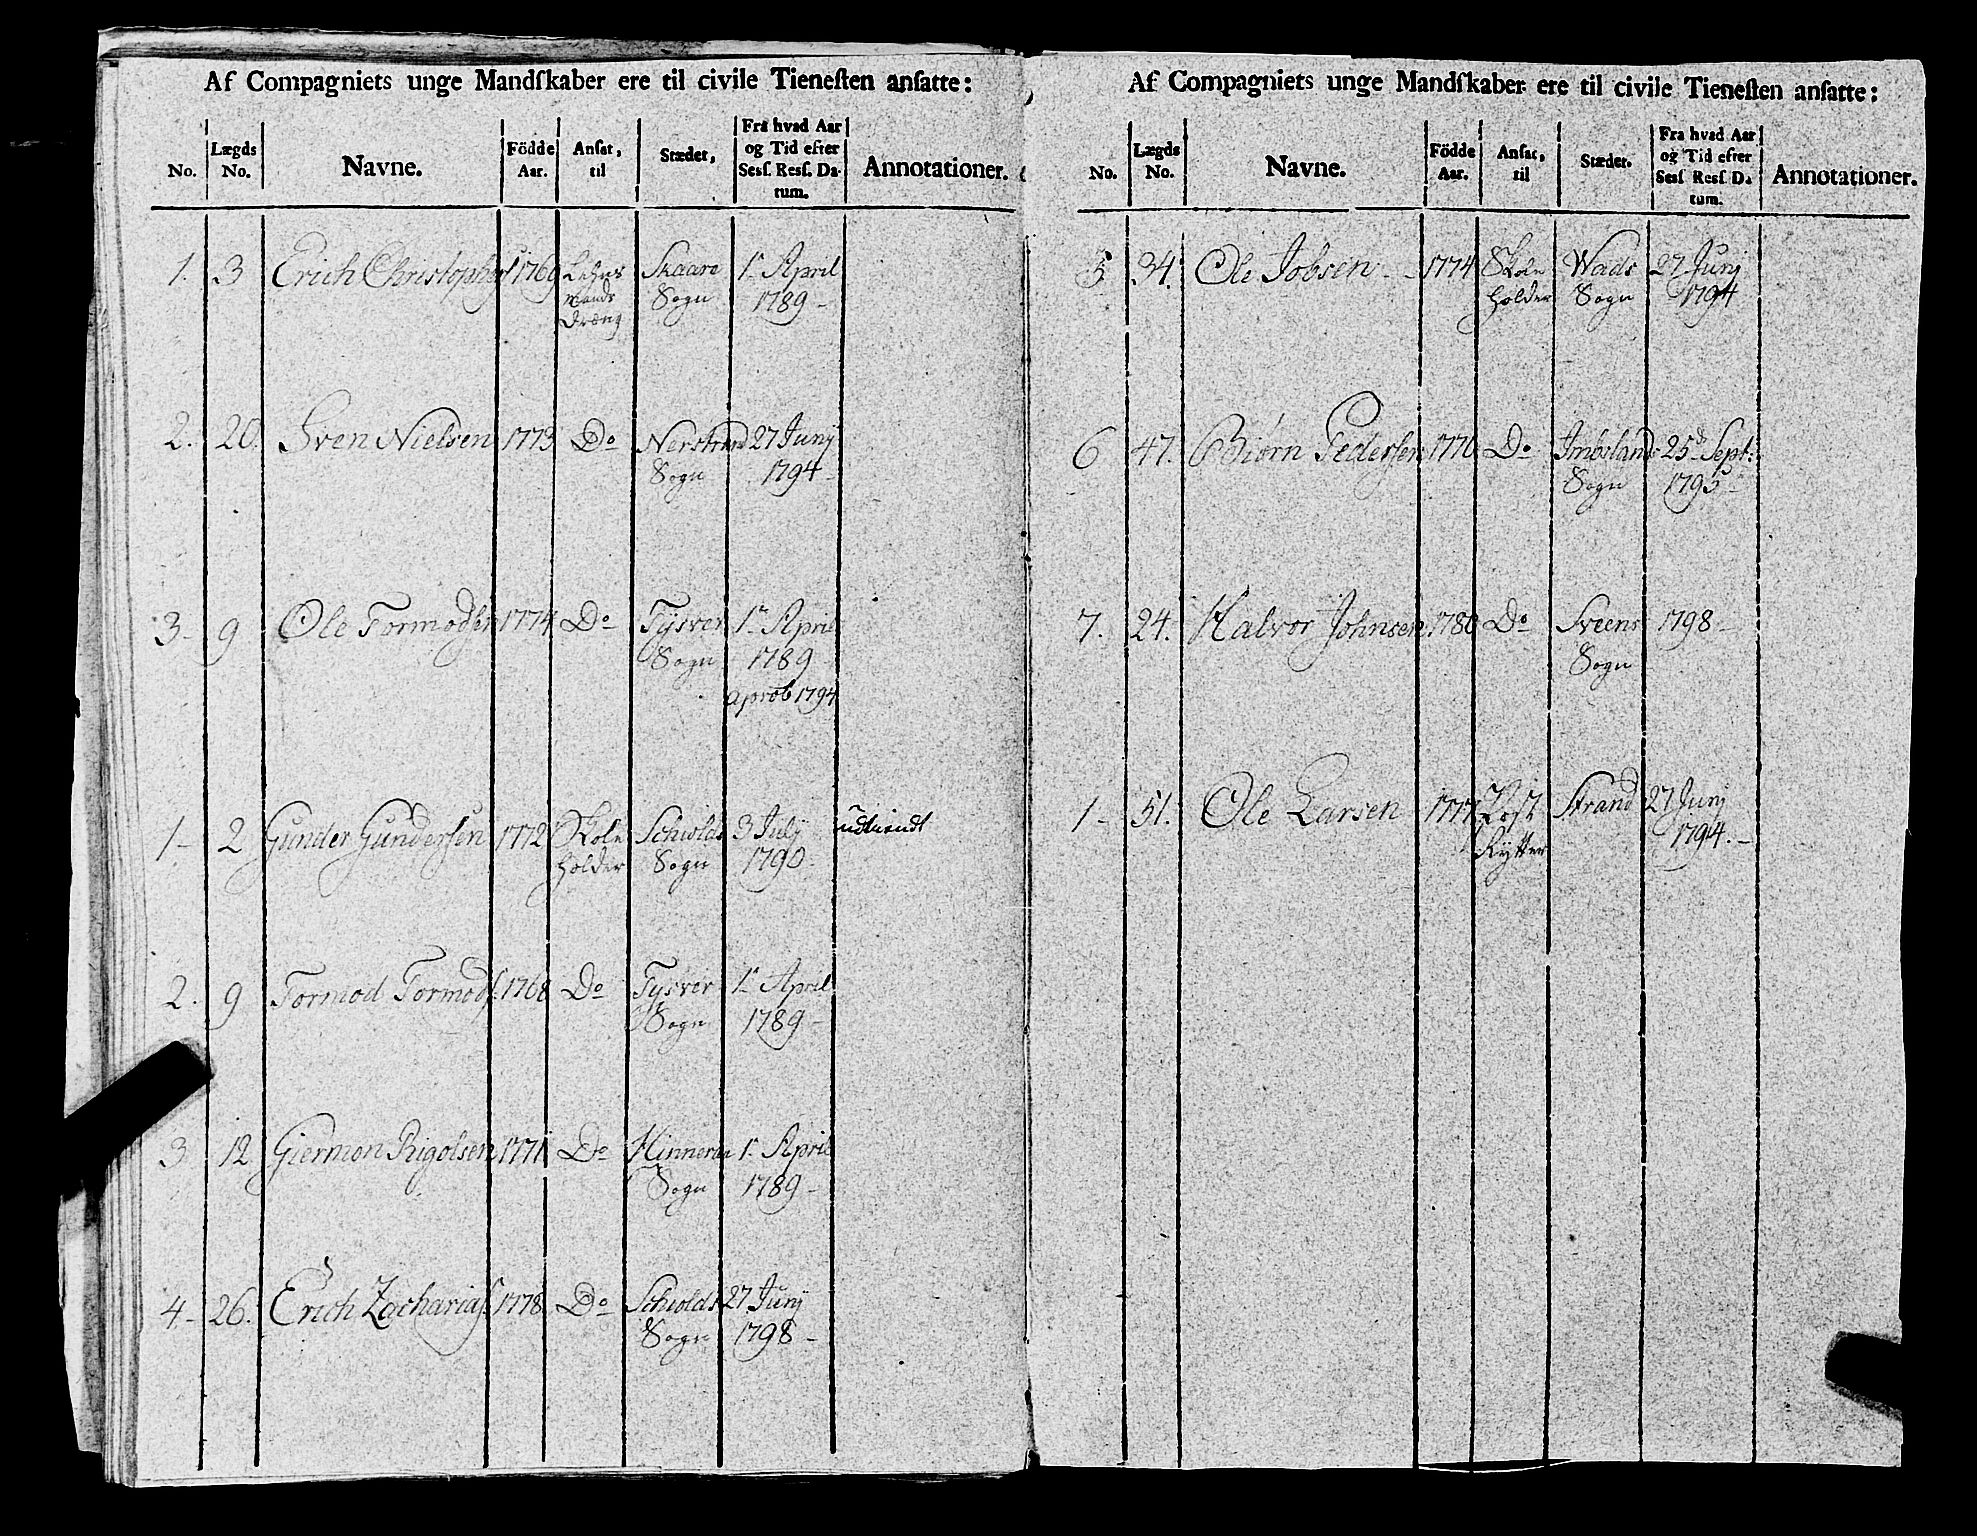 Af Compagniets unge Mandſkaber ere til civile Tieneſten anſatte:
No. Lægds No. Navne. Födde Aar. Anſat, til Stædet, Fra hvad Aar og Tid efter Sesſ. Resſ. Datum. Annotationer.
1. 3 Erich Christophers 1769 Lehns Skaare 1r April
mands Sogn 1789 -
dræng
2. 20. Sven Nielsen 1773 Do Nerstrand 27 Junj
Sogn 1794 -
3- 9 Ole Tormodsen 1774 Do Tysver 1r April
Sogn 1789
aprob 1794
1- 2 Gunder Gundersen 1772 Skole Schiolds 3 July
holder Sogn 1790.
2. 9 Tormod Tormods. 1768 Do Tysver 1r April
Sogn 1789 -
3 12 Giermon Rigolsen 1771 Do 1r April
Sogn 1789 -
4- 26. Erich Zacharias. 1778 Do Schiolds 27 Junj
Sogn 1798 -
Af Compagniets unge Mandſkaber ere til civile Tieneſten anſatte:
No. Lægds No. Navne. Födde Aar. Anſat, til Stædet. Fra hvad Aar og Tid efter Sesſ Resſ Datum. Annotationer.
5 34. Ole Jobsen - 1774 Skole Wads 27 Junj
holder Sogn 1794
6 47. Biørn Pedersen 1770 Do Imbslands 25de Sept:
Sogn 1795 -
7. 24. Halvor Johnsen 1780 Do Sveens 1798 -
Sogn
1- 51. Ole Larsen 1777 Post Strand 27 Junj
Rytter 1794. -